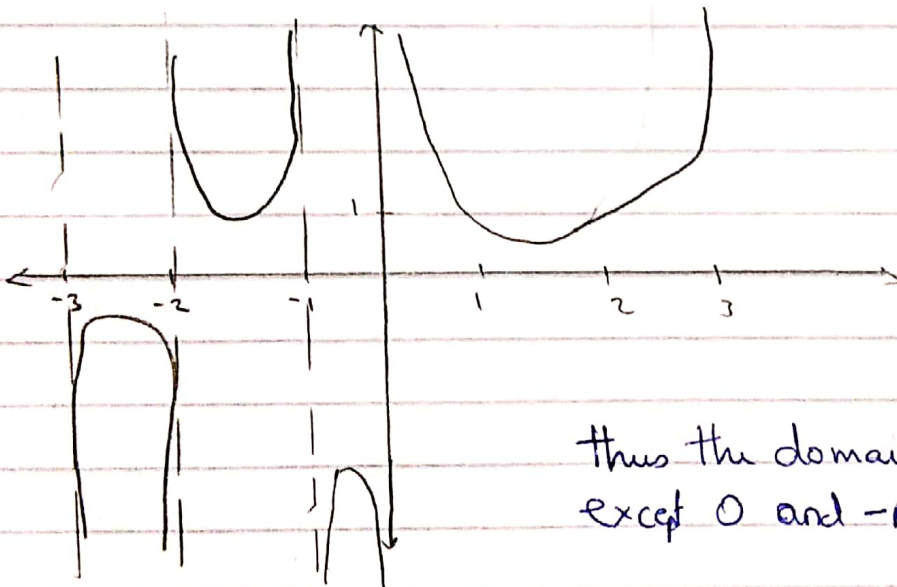 1
-3 -2 -1 1 2 3
thus the domai
except 0 and -